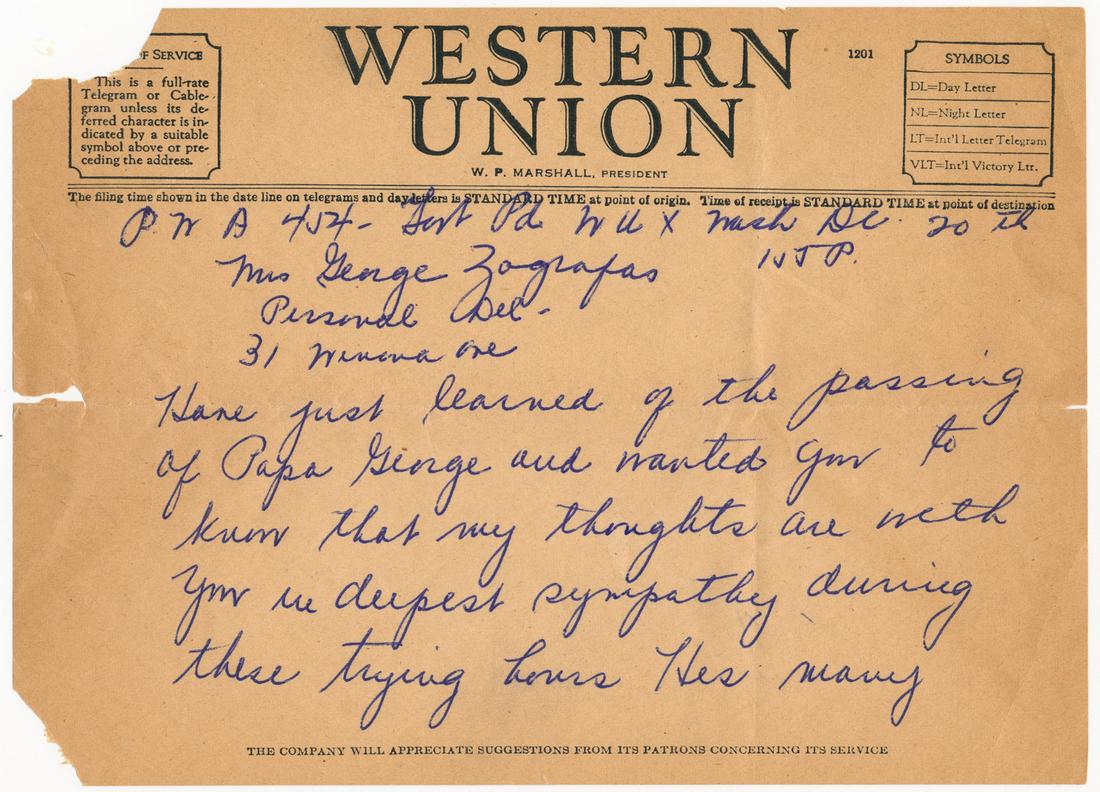 OF SERVICE
This is a full-rate
Telegram or Cable-
gram unless its de-
ferred character is in-
dicated by a suitable
symbol above or pre-
ceding the address.
WESTERN
UNION
W. P. MARSHALL, PRESIDENT
1201
SYMBOLS
DL=Day Letter
NL=Night Letter
LT=Int'l Letter Telegram
VLT=Int'l Victory Ltr.
The filing time shown in the date line on telegrams and day letters is STANDARD TIME at point of origin. Time of receipt is STANDARD TIME at point of destination
P W A 454 - Govt Pd W U X Wash DC 20 th
155 P.
Mrs George Zografas
Personal Del -
31 Winona ave
Have just learned of the passing
of Papa George and wanted you to
know that my thoughts are with
you in deepest sympathy during
these trying hours His many
THE COMPANY WILL APPRECIATE SUGGESTIONS FROM ITS PATRONS CONCERNING ITS SERVICE